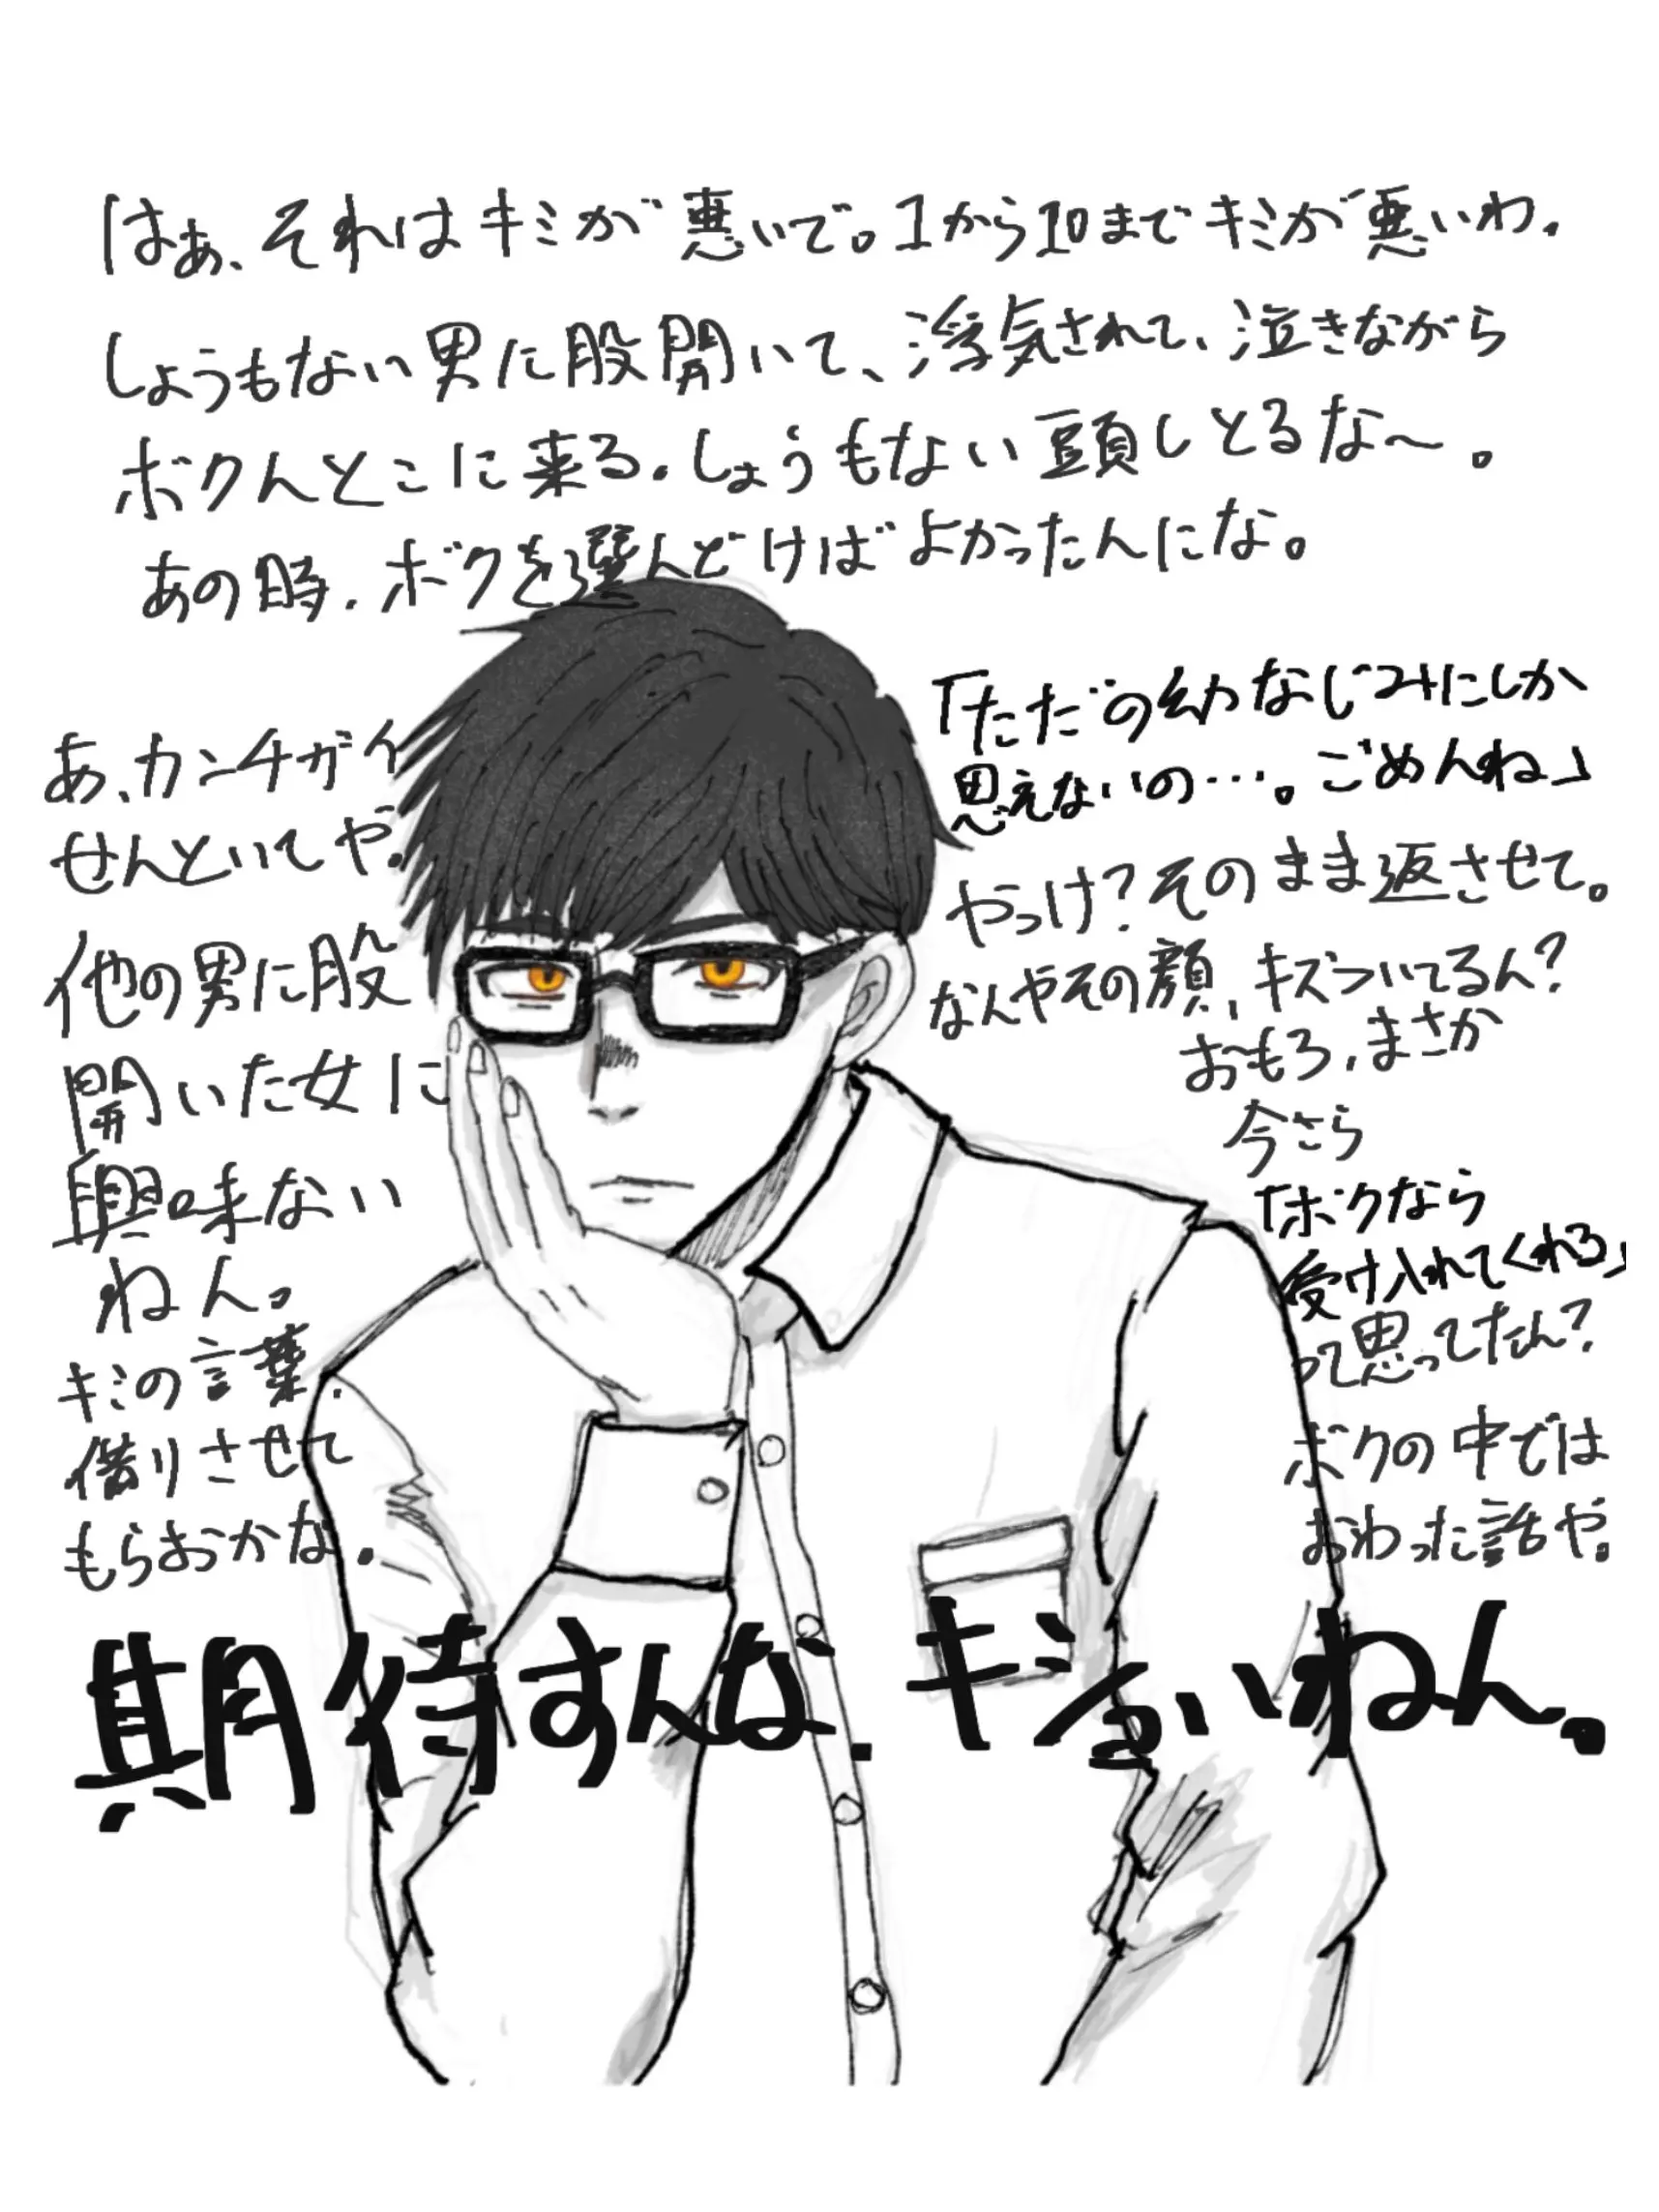 はぁ、それはキミが悪いで。1から10までキミが悪いわ.
しょうもない男に股開いて、浮気されて、泣きながら
ボクんとこに来る.しょうもない頭しとるな〜。
あの時.ボクを選んどけばよかったんにな。
あ、カンチガイ
せんといてや.
他の男に股
開いた女に
興味ない
ねん。
キミの言葉.
借りさせて
もらおかな.
「ただの幼なじみにしか
思えないの…。ごめんね」
やっけ?そのまま返させて。
なんやその顔、キズついてるん?
おもろ,まさか
今さら
「ボクなら
受け入れてくれる」
って思ってたん?
ボクの中では
おわった話や.
期待すんな.キショいねん。